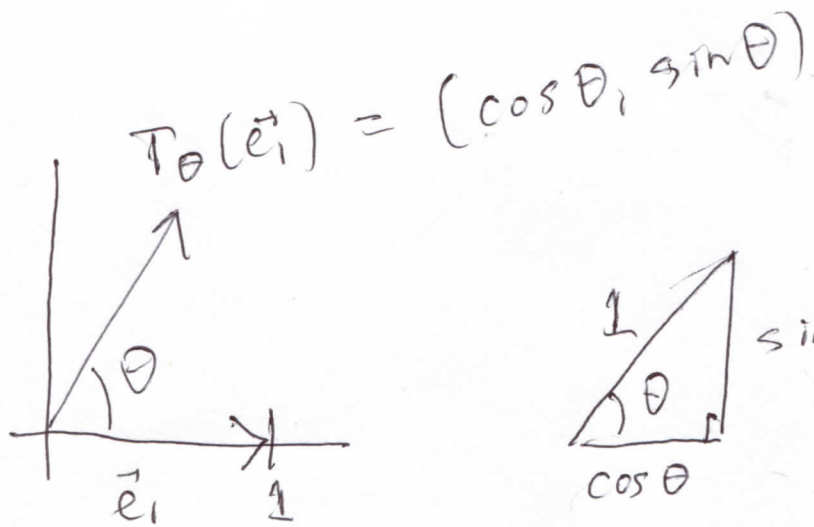 T_θ(e⃗₁) = (cosθ, sinθ)
θ
e⃗₁ 1
1
θ
sin
cosθ